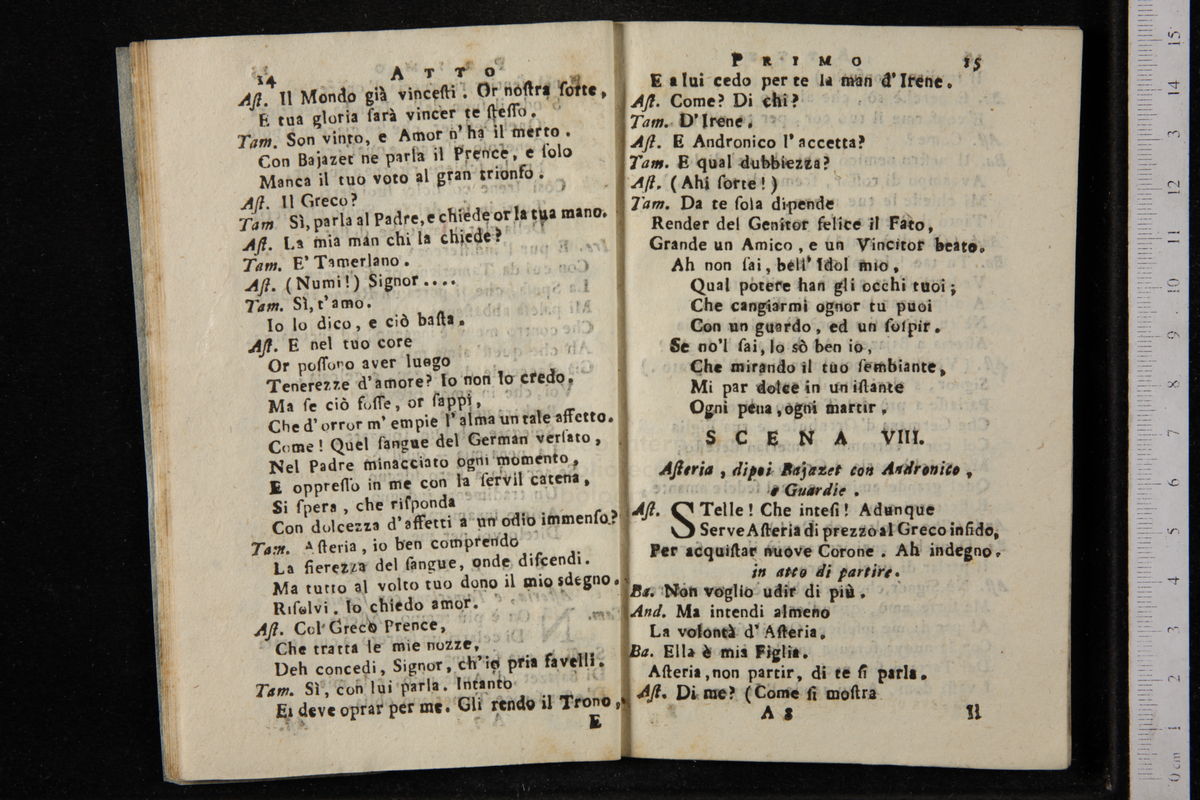 14 ATTO
Aſt. Il Mondo già vinceſti. Or noſtra ſorte,
E tua gloria ſarà vincer te ſteſſo.
Tam. Son vinto, e Amor n'ha il merto.
Con Bajazet ne parla il Prence, e ſolo
Manca il tuo voto al gran trionfo.
Aſt. Il Greco?
Tam. Sì, parla al Padre, e chiede or la tua mano.
Aſt. La mia man chi la chiede?
Tam. E' Tamerlano.
Aſt. (Numi!) Signor....
Tam. Sì, t'amo.
Io lo dico, e ciò baſta.
Aſt. E nel tuo core
Or poſſono aver luogo
Tenerezze d'amore? Io non lo credo.
Ma ſe ciò foſſe, or ſappi,
Che d'orror m'empie l'alma un tale affetto.
Come! Quel ſangue del German verſato,
Nel Padre minacciato ogni momento,
E oppreſſo in me con la ſervil catena,
Si ſpera, che riſponda
Con dolcezza d'affetti a un odio immenſo?
Tam. Aſteria, io ben comprendo
La fierezza del ſangue, onde diſcendi.
Ma tutto al volto tuo dono il mio sdegno.
Riſolvi. Io chiedo amor.
Aſt. Col Greco Prence,
Che tratta le mie nozze,
Deh concedi, Signor, ch'io pria favelli.
Tam. Sì, con lui parla. Intanto
Ei deve oprar per me. Gli rendo il Trono,
E
PRIMO 15
E a lui cedo per te la man d'Irene.
Aſt. Come? Di chi?
Tam. D'Irene.
Aſt. E Andronico l'accetta?
Tam. E qual dubbiezza?
Aſt. (Ahi ſorte!)
Tam. Da te ſola dipende
Render del Genitor felice il Fato,
Grande un Amico, e un Vincitor beato.
Ah non ſai, bell' Idol mio,
Qual potere han gli occhi tuoi;
Che cangiarmi ognor tu puoi
Con un guardo, ed un ſoſpir.
Se no'l ſai, lo sò ben io,
Che mirando il tuo ſembiante,
Mi par dolce in un iſtante
Ogni pena, ogni martir.
SCENA VIII.
Aſteria, dipoi Bajazet con Andronico,
e Guardie.
Aſt. STelle! Che inteſi! Adunque
Serve Aſteria di prezzo al Greco infido,
Per acquiſtar nuove Corone. Ah indegno.
in atto di partire.
Ba. Non voglio udir di più.
And. Ma intendi almeno
La volontà d'Aſteria.
Ba. Ella è mia Figlia.
Aſteria, non partir, di te ſi parla.
Aſt. Di me? (Come ſi moſtra
A 8 Il